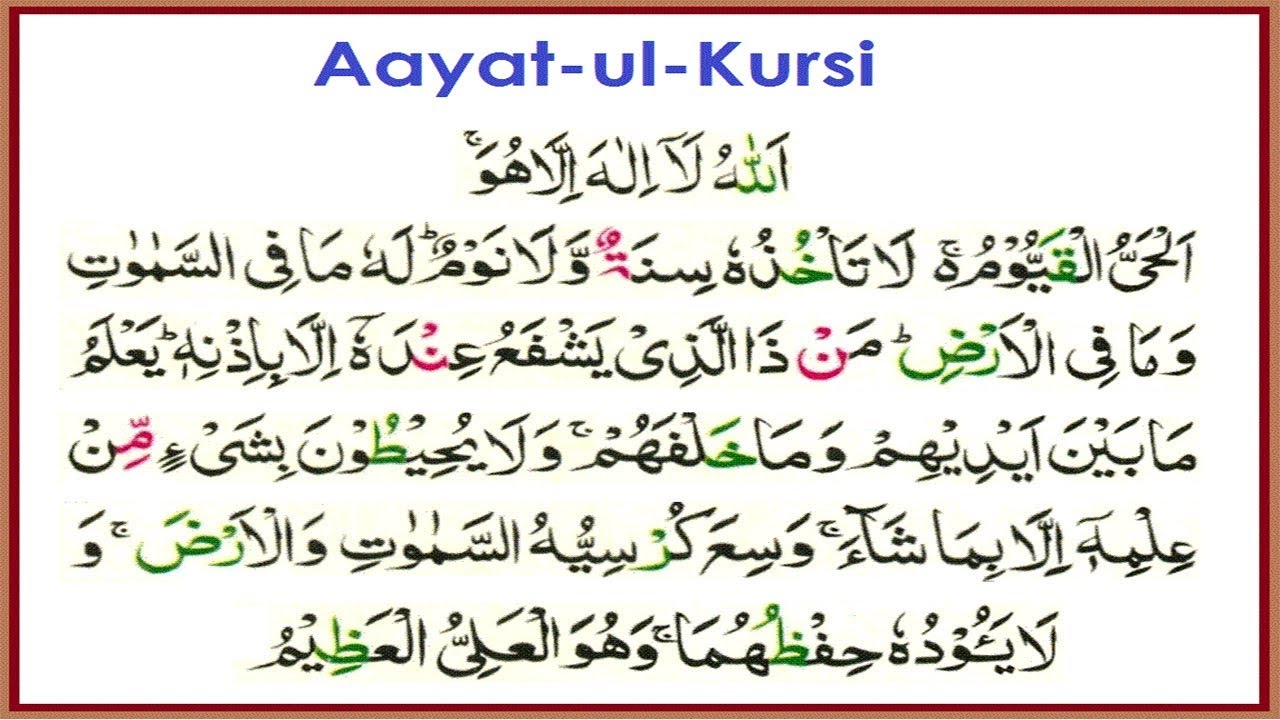 Aayat-ul-Kursi
اَللّٰهُ لَاۤ اِلٰهَ اِلَّا هُوَ ۚ
اَلْحَیُّ الْقَیُّوْمُ ۬ۚ لَا تَاْخُذُهٗ سِنَةٌ وَّ لَا نَوْمٌ ؕ لَهٗ مَا فِی السَّمٰوٰتِ
وَ مَا فِی الْاَرْضِ ؕ مَنْ ذَا الَّذِیْ یَشْفَعُ عِنْدَهٗۤ اِلَّا بِاِذْنِهٖ ؕ یَعْلَمُ
مَا بَیْنَ اَیْدِیْهِمْ وَ مَا خَلْفَهُمْ ۚ وَ لَا یُحِیْطُوْنَ بِشَیْءٍ مِّنْ
عِلْمِهٖۤ اِلَّا بِمَا شَآءَ ۚ وَسِعَ كُرْسِیُّهُ السَّمٰوٰتِ وَ الْاَرْضَ ۚ وَ
لَا یَـُٔوْدُهٗ حِفْظُهُمَا ۚ وَ هُوَ الْعَلِیُّ الْعَظِیْمُ